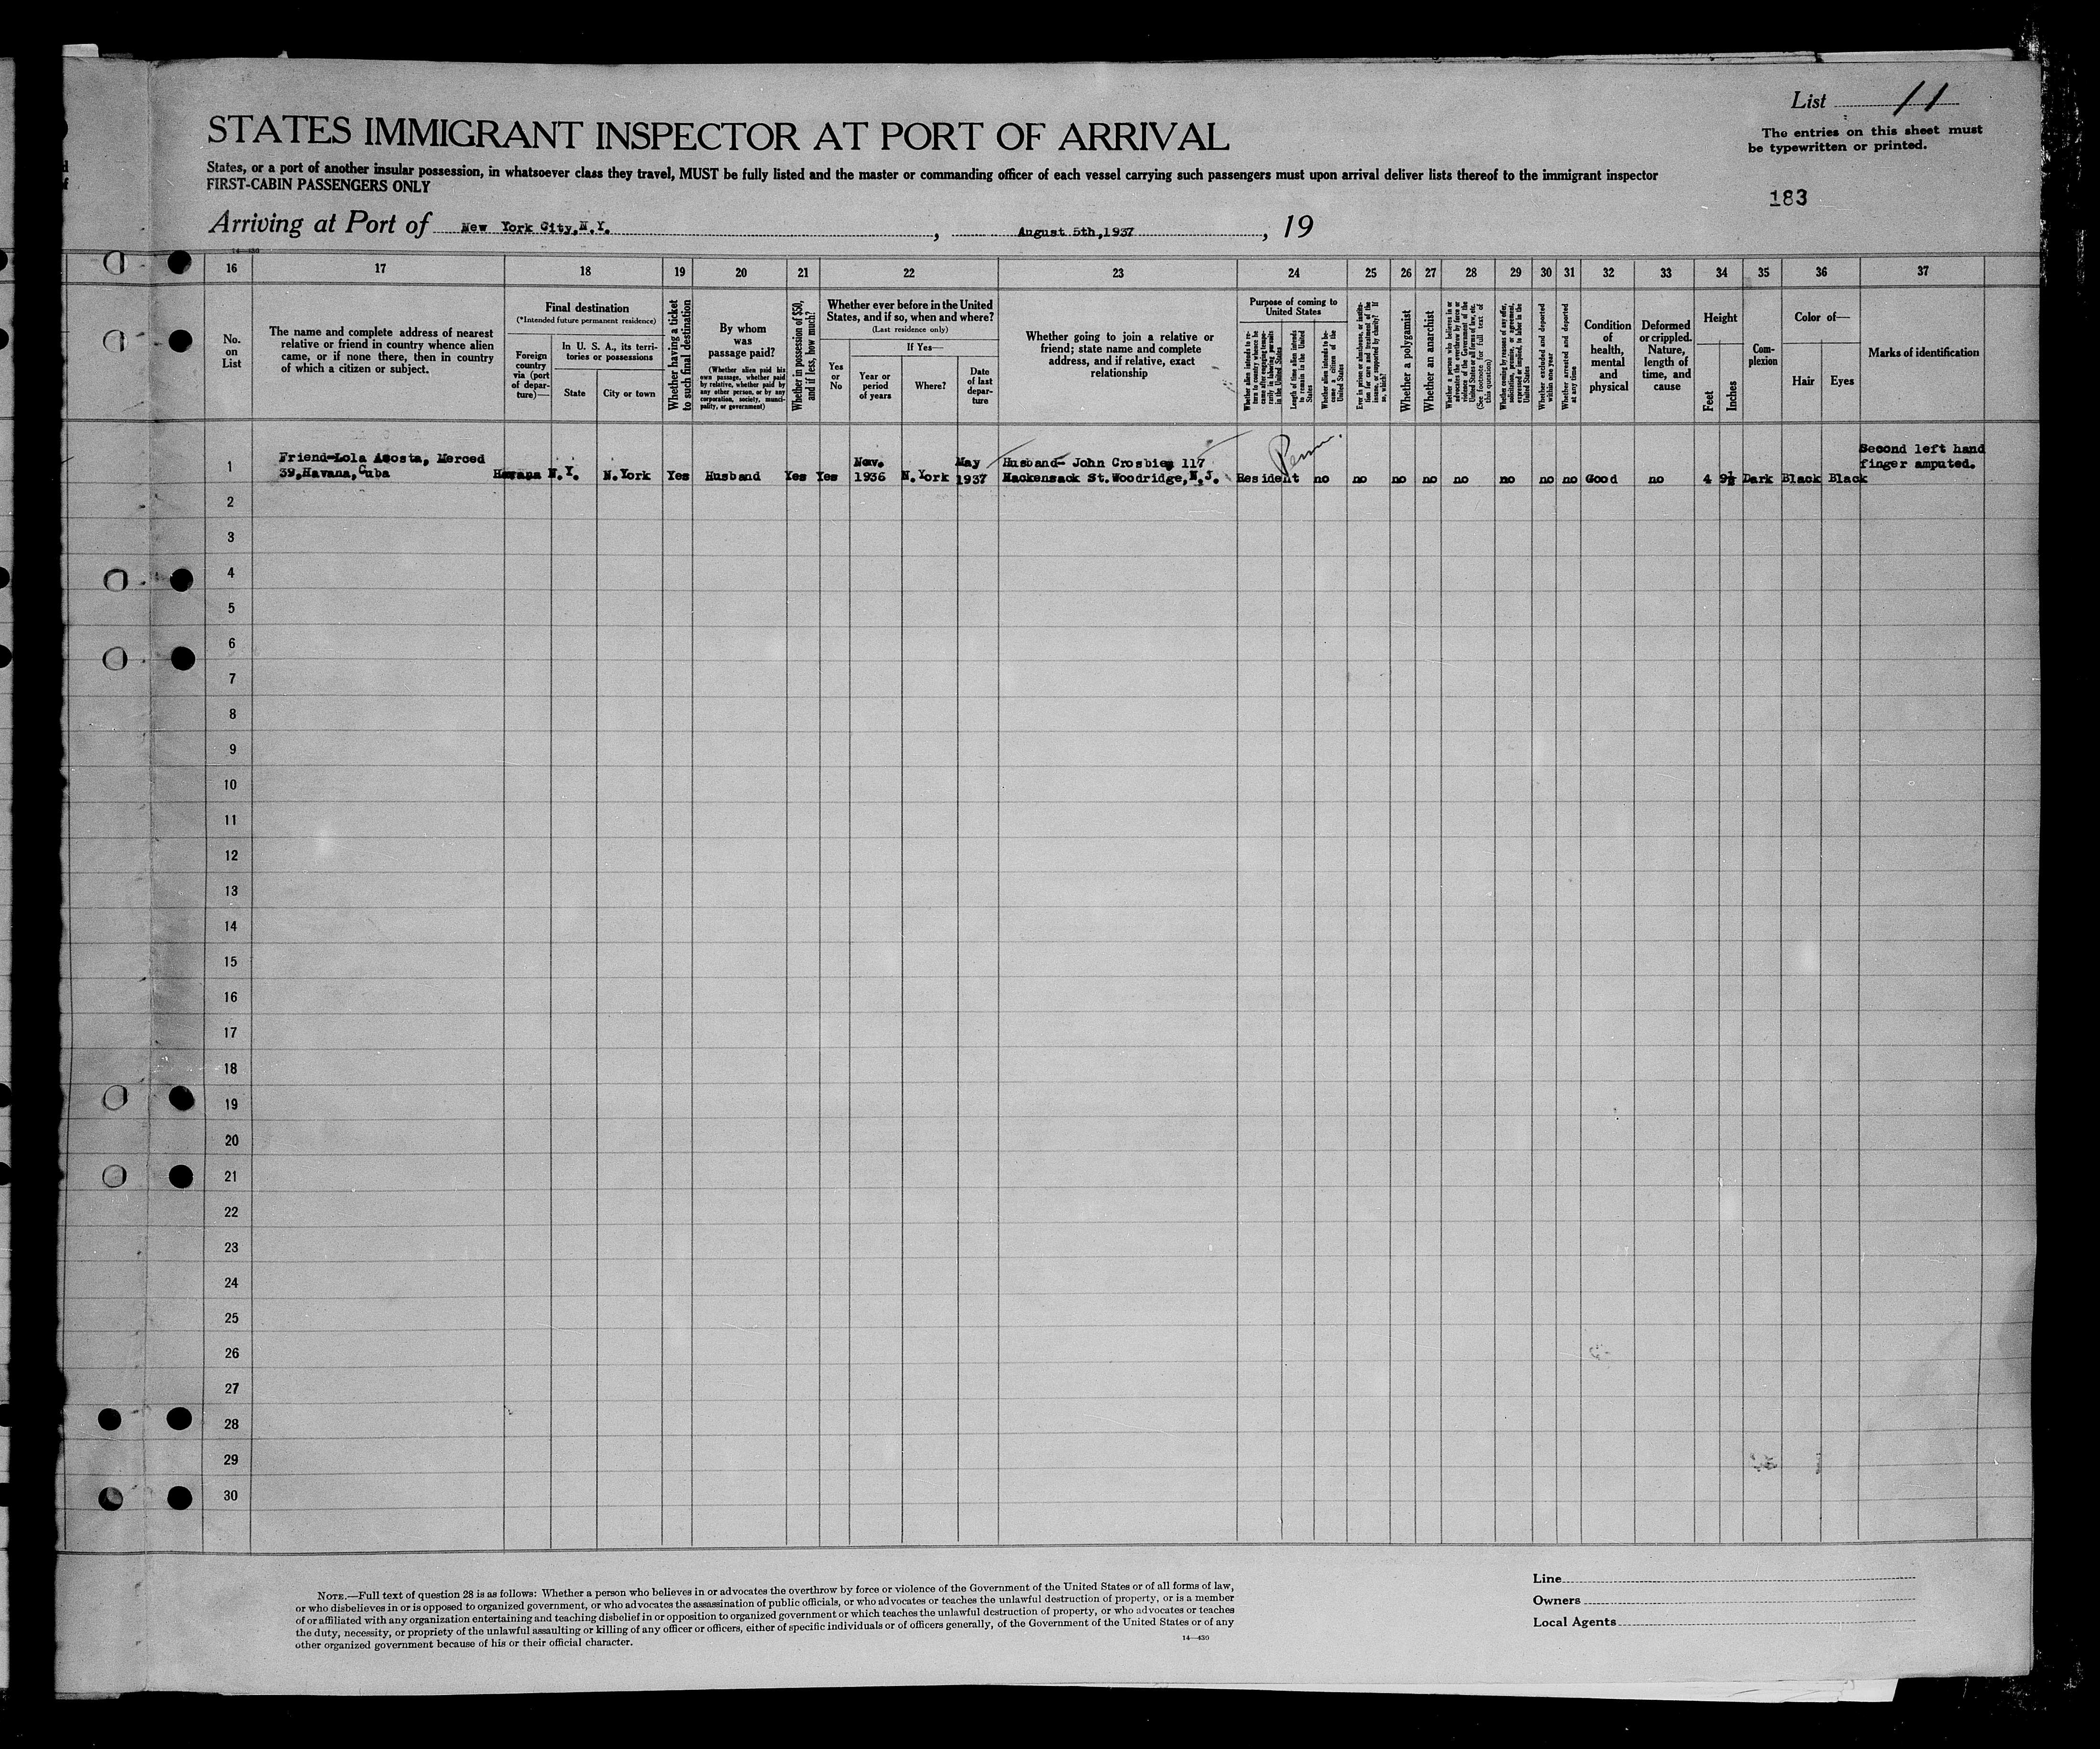 List 11
The entries on this sheet must
be typewritten or printed.
STATES IMMIGRANT INSPECTOR AT PORT OF ARRIVAL
States, or a port of another insular possession, in whatsoever class they travel, MUST be fully listed and the master or commanding officer of each vessel carrying such passengers must upon arrival deliver lists thereof to the immigrant inspector
FIRST-CABIN PASSENGERS ONLY
183
Arriving at Port of New York City, N.Y. , August 5th, 1937 , 19
14—430
16 17 18 19 20 21 22 23 24 25 26 27 28 29 30 31 32 33 34 35 36 37
No.
on
List
The name and complete address of nearest
relative or friend in country whence alien
came, or if none there, then in country
of which a citizen or subject.
Final destination
(*Intended future permanent residence)
Foreign
country
via (port
of depar-
ture)—
In U. S. A., its terri-
tories or possessions
State
City or town
Whether having a ticket
to such final destination
By whom
was
passage paid?
(Whether alien paid his
own passage, whether paid
by relative, whether paid by
any other person, or by any
corporation, society, munici-
pality, or government)
Whether in possession of $50,
and if less, how much?
Whether ever before in the United
States, and if so, when and where?
(Last residence only)
Yes
or
No
If Yes—
Year or
period
of years
Where?
Date
of last
depar-
ture
Whether going to join a relative or
friend; state name and complete
address, and if relative, exact
relationship
Purpose of coming to
United States
Whether alien intends to re-
turn to country whence he
came after engaging tempo-
rarily in laboring pursuits
in the United States
Length of time alien intends
to remain in the United
States
Whether alien intends to be-
come a citizen of the
United States
Ever in prison or almshouse, or institu-
tion for care and treatment of the
insane, or supported by charity? If
so, which?
Whether a polygamist
Whether an anarchist
Whether a person who believes in or
advocates the overthrow by force or
violence of the Government of the
United States or all forms of law, etc.
(See footnote for full text of
this question)
Whether coming by reason of any offer,
solicitation, promise, or agreement,
expressed or implied, to labor in the
United States
Whether excluded and deported
within one year
Whether arrested and deported
at any time
Condition
of
health,
mental
and
physical
Deformed
or crippled.
Nature,
length of
time, and
cause
Height
Feet
Inches
Com-
plexion
Color of—
Hair
Eyes
Marks of identification
1 Friend-Lola Acosta, Merced
39, Havana, Cuba
Havana N.Y. N.York Yes Husband Yes Yes
Nov.
1936
N.York
May
1937
Husband- John Crosbie, 117
Hackensack St. Woodridge, N.J.
Perm.
Resident no no no no no no no no Good no 4 9½ Dark Black Black
Second left hand
finger amputed.
2
3
4
5
6
7
8
9
10
11
12
13
14
15
16
17
18
19
20
21
22
23
24
25
26
27
28
29
30
NOTE.—Full text of question 28 is as follows: Whether a person who believes in or advocates the overthrow by force or violence of the Government of the United States or of all forms of law,
or who disbelieves in or is opposed to organized government, or who advocates the assassination of public officials, or who advocates or teaches the unlawful destruction of property, or is a member
of or affiliated with any organization entertaining and teaching disbelief in or opposition to organized government or which teaches the unlawful destruction of property, or who advocates or teaches
the duty, necessity, or propriety of the unlawful assaulting or killing of any officer or officers, either of specific individuals or of officers generally, of the Government of the United States or of any
other organized government because of his or their official character.
14—430
Line
Owners
Local Agents